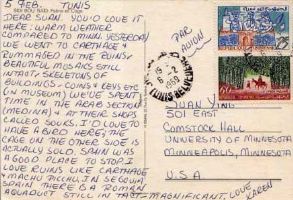 5 FEB. TUNIS
SIDI BOU SAID
DEAR SUAN YOU'D LOVE IT
HERE: WARM WEATHER
COMPARED TO MINN. YESTERDAY
WE WENT TO CARTHAGE &
RUMMAGED IN THE RUINS,
BEAUTIFUL MOSAICS STILL
INTACT, SKELETONS OF
BUILDINGS. COINS & KEYS ETC
(IN MUSEUM) WE'VE SPENT
TIME IN THE ARAB SECTION
(MEDINA) & AT THEIR SHOPS
CALLED SOUKS. I'D LOVE TO
HAVE A BIRD HERE; THE
CAGE ON THE OTHER SIDE IS
ACTUALLY SOLD. SPAIN WAS
A GOOD PLACE TO STOP. I
LOVE RUINS LIKE CARTHAGE
& MACHU PICCHU. IN SEGOVIA,
SPAIN THERE IS A ROMAN
AQUADUCT STILL IN TACT - MAGNIFICANT. LOVE,
KAREN
PAR
AVION
60
SUAN YING
501 EAST
COMSTOCK HALL
UNIVERSITY OF MINNESOTA
MINNEAPOLIS, MINNESOTA
U.S.A